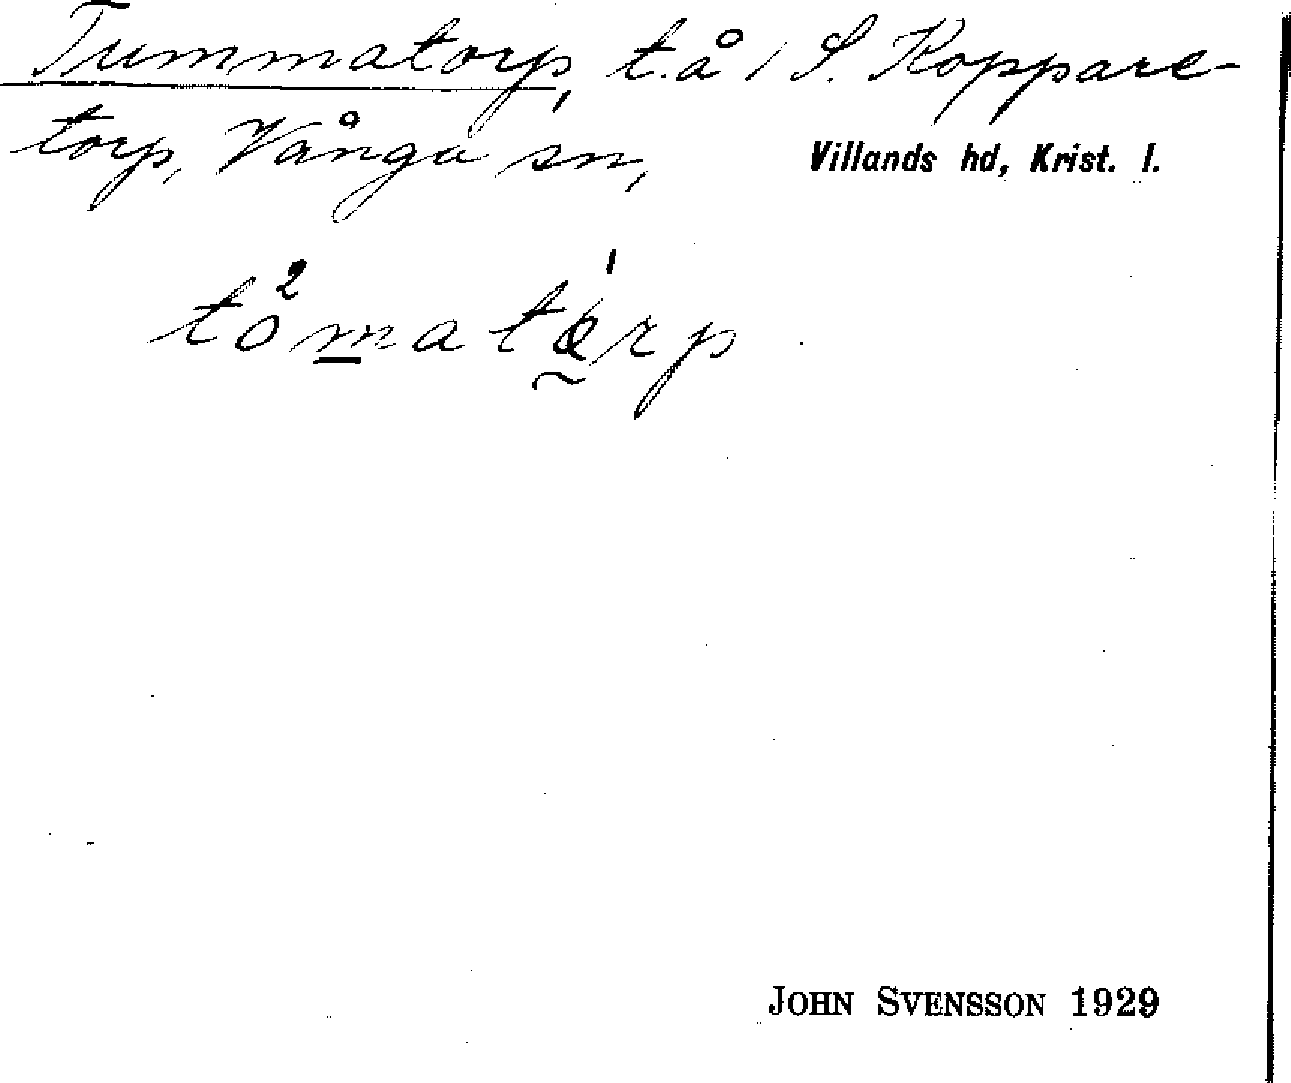 Tummatorp, t.å i S. Koppare-
torp, Vånga sn,
Villands hd, Krist. l.
JOHN SVENSSON 1929